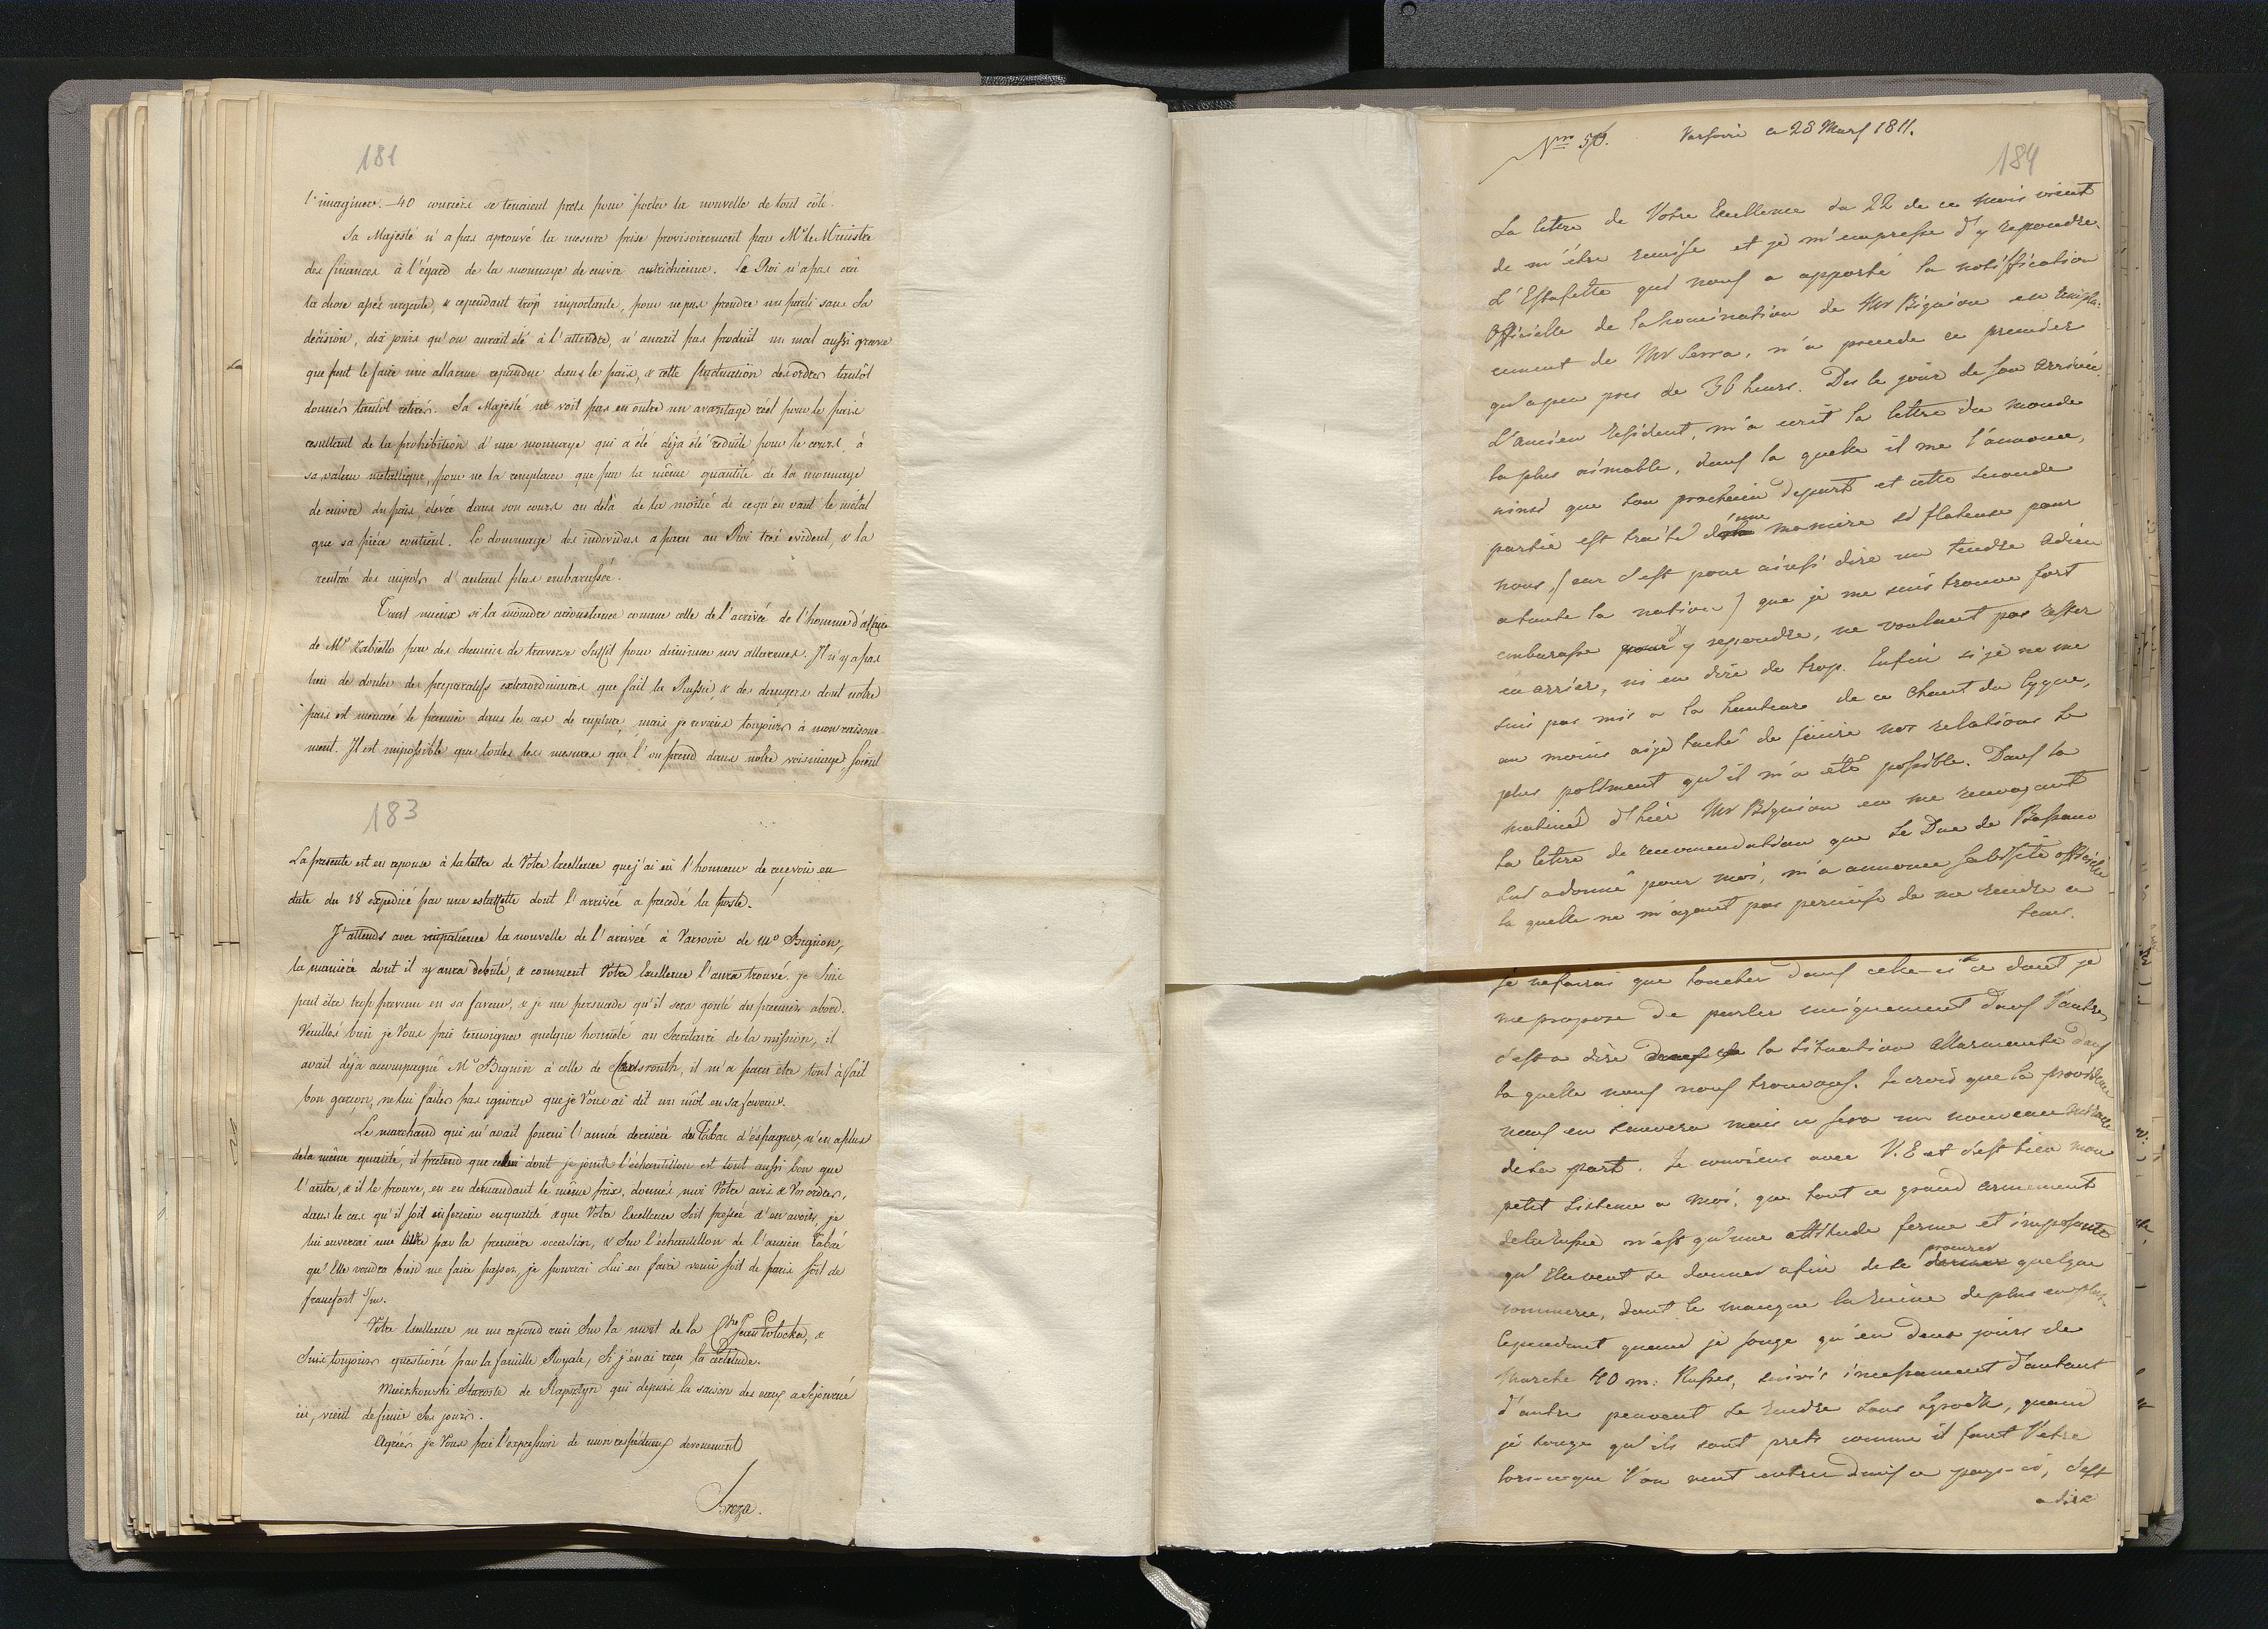 181
l'imaginer. 40 couriers se tenaient prets pour porter la nouvelle de tout côté.
Sa Majesté n'a pas aprouvé la mesure prise provisoirement par Mr le Ministre
des finances à l'égard de la monnaye de cuivre autrichienne. Le Roi n'a pas crû
la chose assés urgente, & cependant trop importante, pour ne pas prendre un parti sans Sa
décision, dix jours qu'on aurait été à l'attendre, n'aurait pas produit un mal aussi grave
que peut le faire une allarme repandue dans le païs, & cette fluctuation des ordres tantôt
donnés tantôt retirés. Sa Majesté ne voit pas en outre un avantage réel pour le païs
resultant de la prohibition d'une monnaye qui a été déja été reduite pour le cours, à
sa valeur metallique, pour ne la remplacer que par la même quantité de la monnaye
de cuivre du païs, élevée dans son cours au delà de la moitié de ce qu'en vaut le métal
que sa pièce contient. Le dommage des individus a paru au Roi tres evident, & la
rentrée des impots d'autant plus embarassée.
Tant mieux si la moindre circonstance comme celle de l'arrivée de l'homme d'affaire
de Mr Zabiello par des chemins de traverse suffit pour diminuer nos allarmes. Il n'y a pas
lieu de douter des preparatifs extraordinaires que fait la Russie, & des dangers dont notre
païs est menacé le premier dans le cas de rupture, mais je reviens toujours à mon raisone-
ment. Il est impossible que toutes les mesures que l'on prend dans notre voisinage, soient
183
La presente est en reponse à la lettre de Votre Excellence que j'ai eû l'honneur de recevoir en
date du 18 expediée par une estaffette dont l'arrivée a precedé la poste.
J'attends avec impatience la nouvelle de l'arrivée à Varsovie de Mr Bignon,
la manière dont il y aura debuté, & comment Votre Excellence l'aura trouvé, je suis
peut être trop prevenu en sa faveur, & je me persuade qu'il sera gouté du premier abord.
Veuillés bien je Vous prie temoigner quelque honneteté au Secretaire de la mission, il
avait déja accompagné Mr Bignon à celle de Carlsrouth, il m'a paru être tout à fait
bon garçon, ne lui faites pas ignorer que je Vous ai dit un mot en sa faveur.
Le marchand qui m'avait fourni l'année dernière du Tabac d'éspagne, n'en a plus
de la même qualité, il pretend que celui dont je joints l'échantillon est tout aussi bon que
l'autre, & il le prouve, en en demandant le même prix, donnés moi Votre avis & Vos ordres,
dans le cas qu'il soit inferieur en qualité & que Votre Excellence soit pressée d'en avoir, je
lui enverrai une livre par la première occasion, & sur l'échantillon de l'ancien Tabac
qu'Elle voudra bien me faire passer, je pourrai Lui en faire venir soit de paris soit de
francfort s/m.
Votre Excellence ne me repond rien sur la mort de la Ctsse Jean Potocka, &
suis toujours questioné par la famille Royale, si j'en ai reçu la certitude.
Mierzkowski Staroste de qui depuis la saison des eaux a séjourné
ici, vient de finir ses jours.
Agréés je Vous prie l'expression de mon respectueux devouement
Breza.
Nro 50. Varsovie ce 28 Mars 1811.
184
La lettre de Votre Excellence du 22 de ce mois vient
de m'être remise et je m'empresse d'y repondre.
L'Estafette qui nous a apporté la notiffication
officielle de la nomination de Mr Bignion en rempla-
cement de Mr Serra, n'a precedé ce premier
qu'apeu pres de 36 heurs. Des le jour de son arrivée
l'ancien Resident, m'a ecrit la lettre du monde
la plus aimable, dans la quelle il me l'annonce,
ainsi que son prochain depart et cette seconde
partie est traité d'une maniere si flateuse pour
nous, (car c'est pour ainsi dire un tendre adieu
a toute la nation) que je me suis trouve fort
embarasse d'y repondre, ne voulant pas rester
en arrier, ni en dire de trop. Enfin si je ne me
suis pas mis a la hauteur de ce chant du Cygne,
au moins aije taché de finire nos relations le
plus poliment qu'il m'a eté possible. Dans la
matinée d'hier Mr Bignion en me renvoyant
la lettre de recomendation que le Duc de Bassano
lui a donné pour moi, m'a annonce sa visite officielle
la quelle ne m'ayant pas permise de me rendre en
tems.
je ne fairai que toucher dans celle-ci ce dont je
me propose de parler uniquement dans l'autre,
c'est a dire la situation allarmante dans
la quelle nous nous trouvons. Je crois que la providence
nous en sauvera mais ce sera un nouveau miracle
de la part. Je conviens avec V.E et c'est bien mon
petit sisteme a moi, que tout ce grand armement
de la Russie n'est qu'une attitude ferme et imposante
qu'Elle veut se donner afin de se procurer quelque
commerce, dont le manque la ruine de plus en plus.
Cependant quand je songe qu'en deux jours de
marche 40 m: Russes, suivis incessament d'autant
d'autres peuvent se rendre sous Sgrock, quand
je songe qu'ils sont prets comme il faut l'etre
lors-ceque l'on veut entrer dans ce pays-ci, c'est
a dire